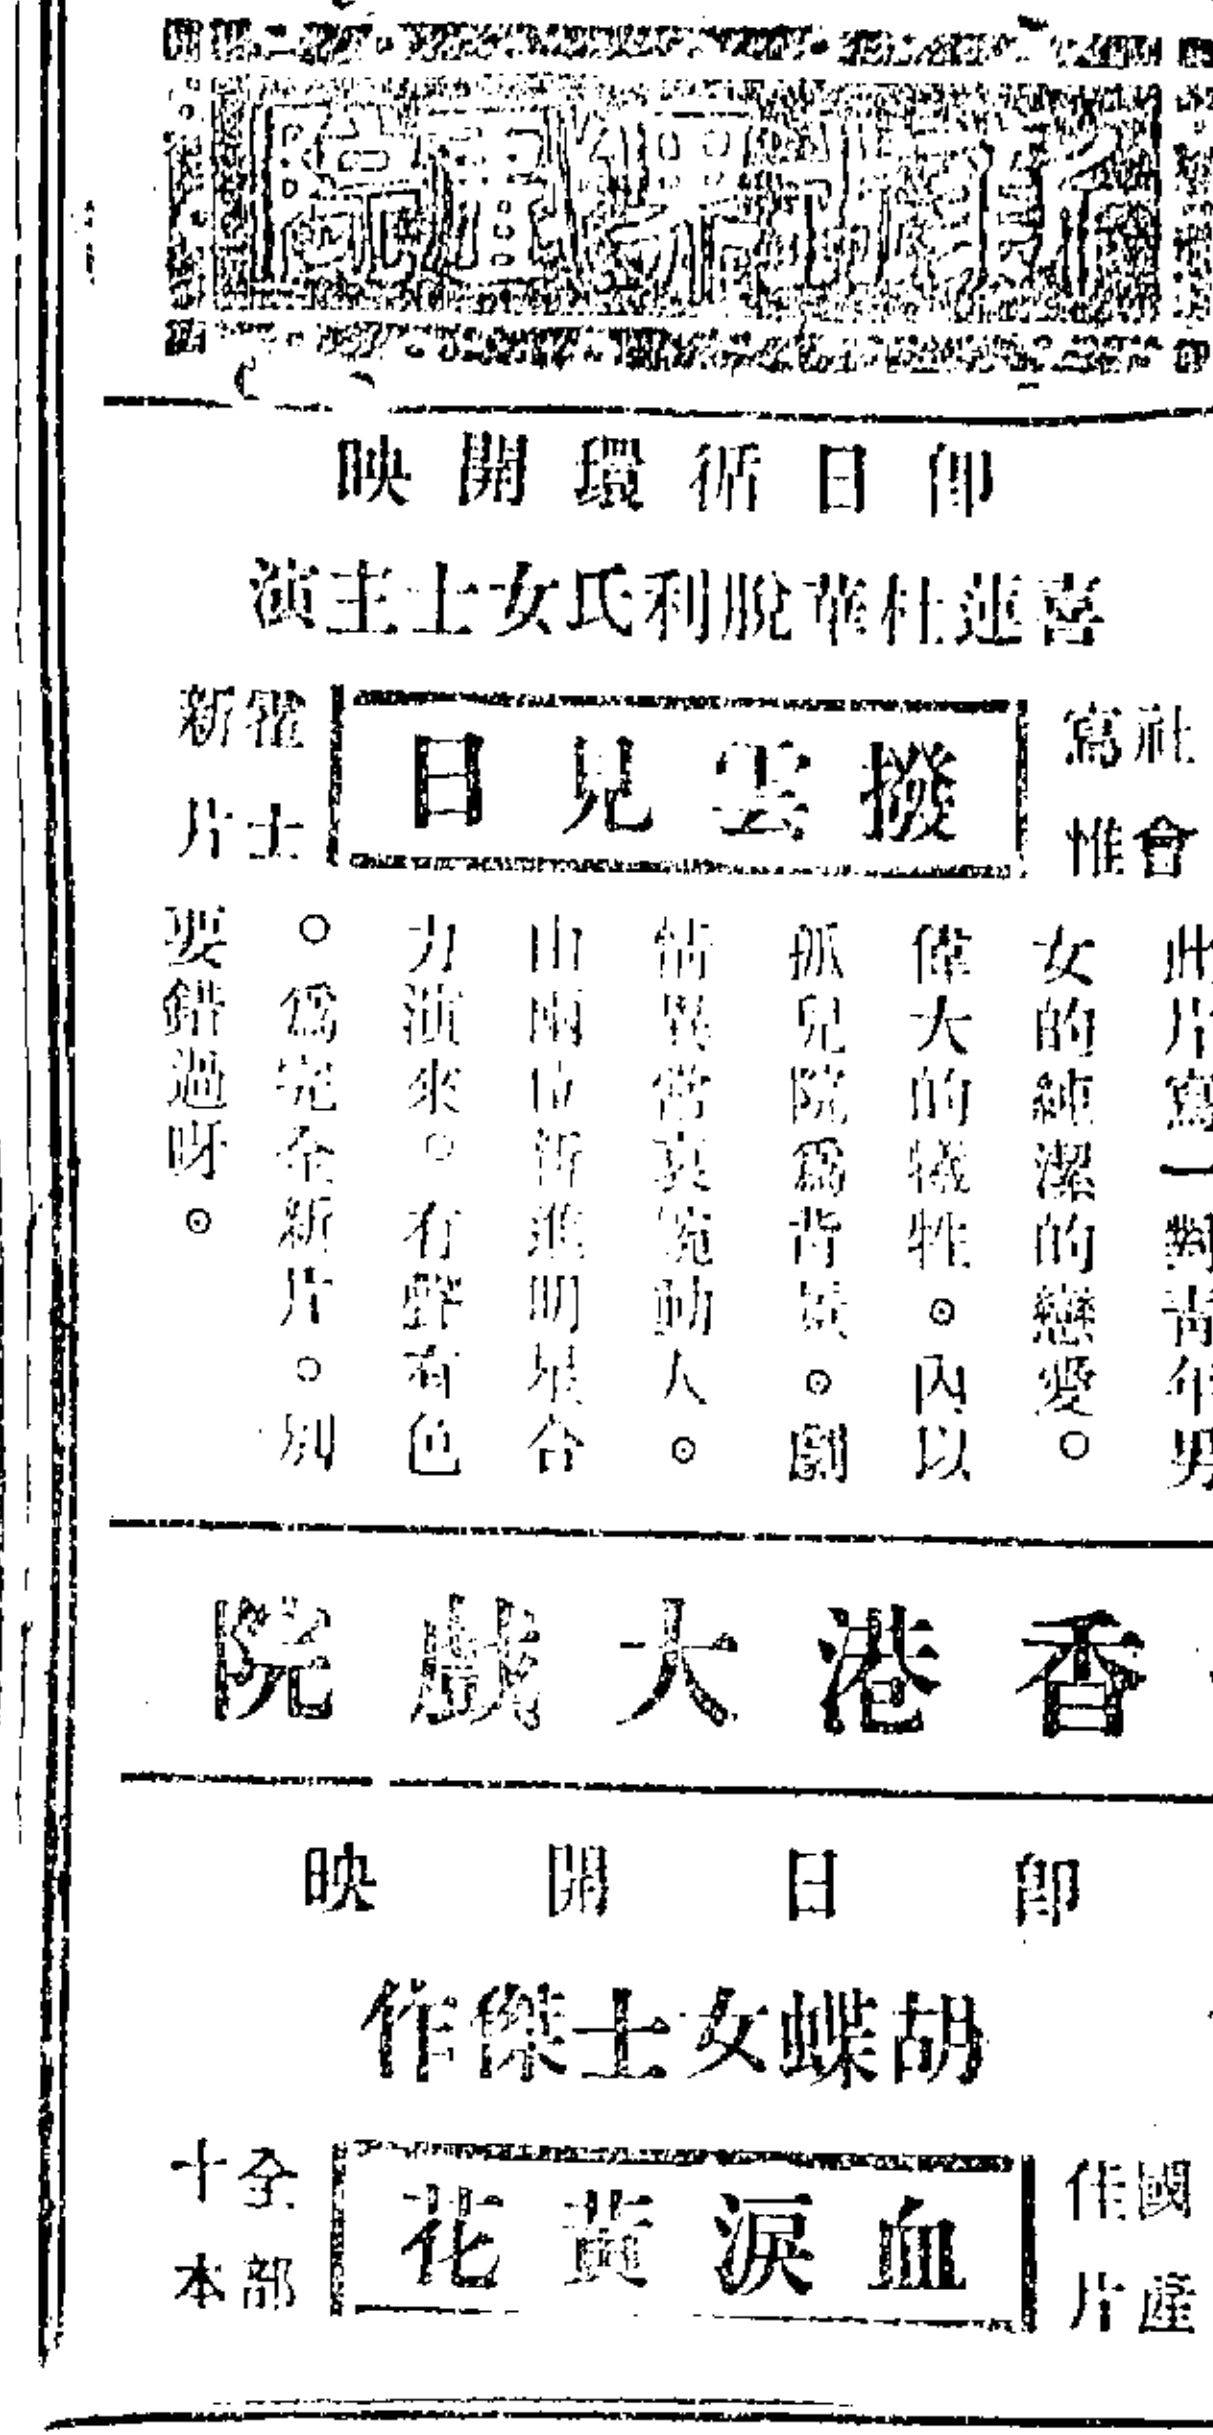 即日循環開映
喜蓮杜華脫利氏女士主演
社會
寫惟
撥雲見日
霍士
新片
此片寫一對青年男
女的純潔的戀愛。
偉大的犧牲。內以
孤兒院爲背景。劇
情異常哀婉動人。
由兩位新進明星合
力演來。有聲有色
。爲完全新片。別
要錯過呀。
香港大戲院
即日開映
胡蝶女士傑作
國產
佳片
血淚黃花
全部
十本